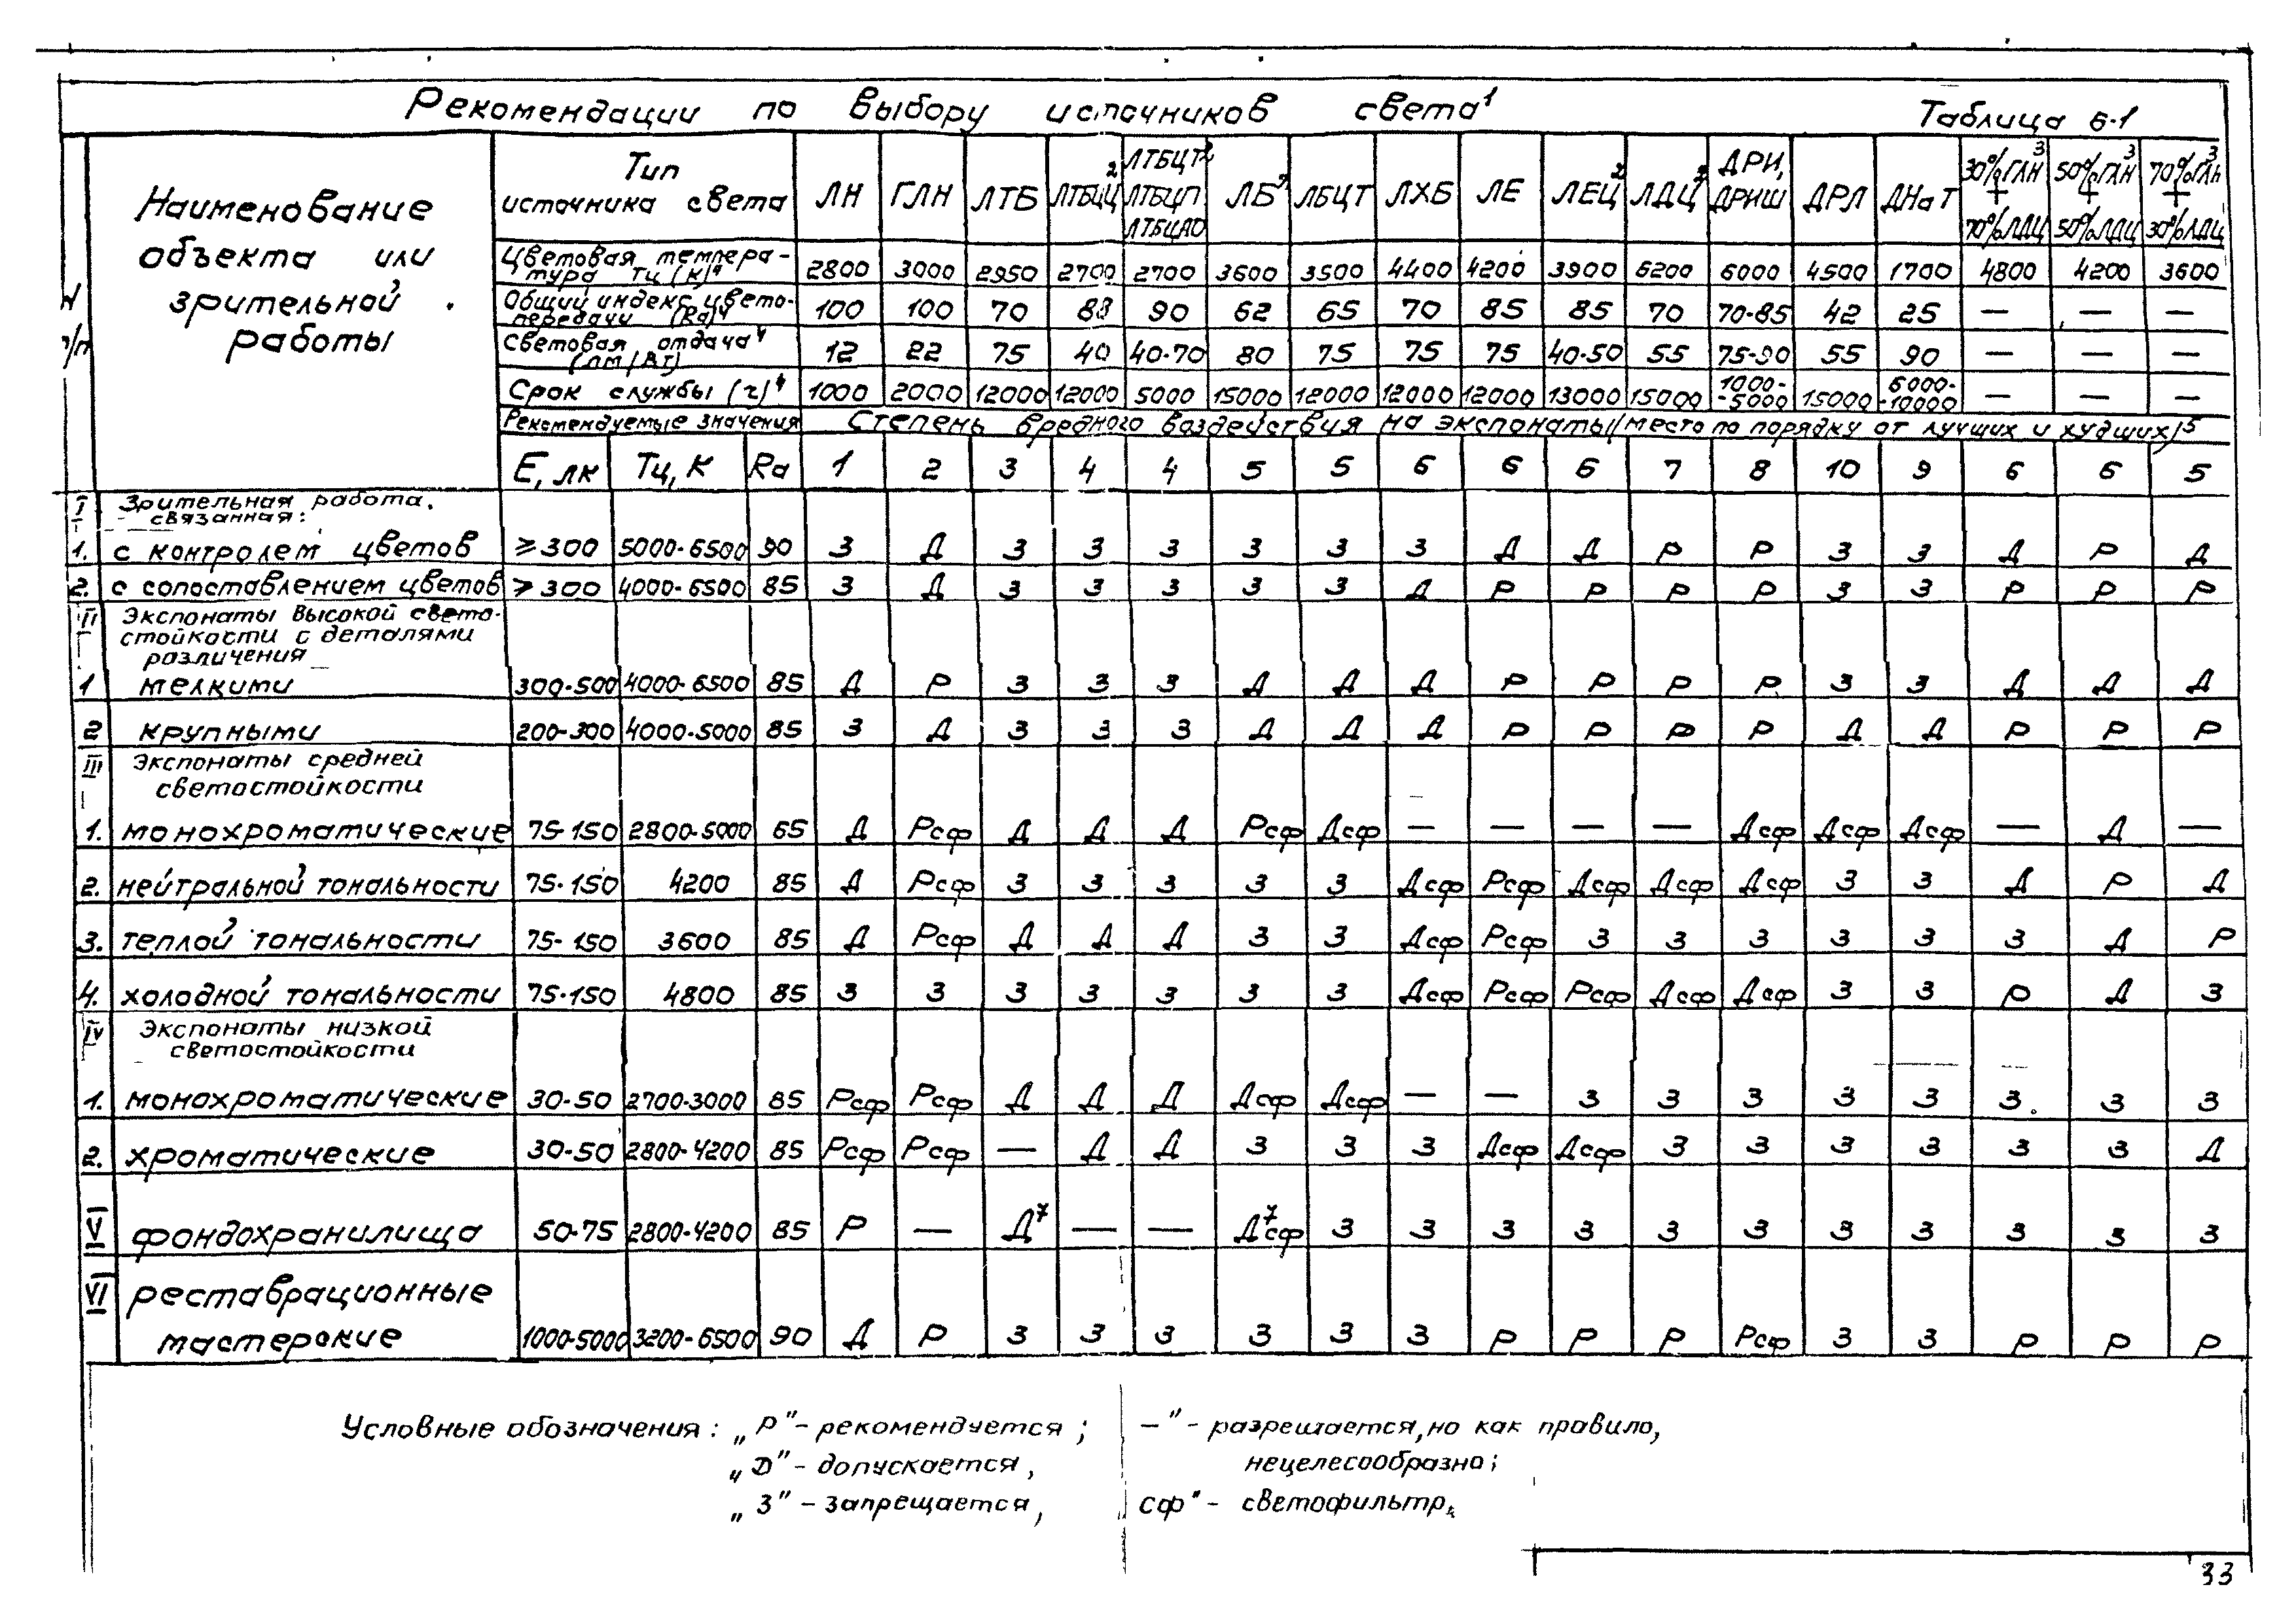 Рекомендации по выбору источников света¹
Таблица 6-1
N п/п
Наименование объекта или зрительной работы
Тип источника света ЛН ГЛН ЛТБ ЛТБЦЦ² ЛТБЦТ² ЛТБЦП ЛТБЦАО ЛБ² ЛБЦТ ЛХБ ЛЕ ЛЕЦ² ЛДЦ² ДРИ, ДРИШ ДРЛ ДНаТ 30%ГЛН³ + 70%ЛДЦ 50%ГЛН³ + 50%ЛДЦ 70%ГЛН³ + 30%ЛДЦ
Цветовая температура Тц (К)⁴ 2800 3000 2950 2700 2700 3600 3500 4400 4200 3900 6200 6000 4500 1700 4800 4200 3600
Общий индекс цветопередачи (Ra)⁴ 100 100 70 88 90 62 65 70 85 85 70 70-85 42 25 — — —
Световая отдача⁴ (лм/Вт) 12 22 75 40 40-70 80 75 75 75 40-50 55 75-90 55 90 — — —
Срок службы (ч)⁴ 1000 2000 12000 12000 5000 15000 12000 12000 12000 13000 15000 1000-5000 15000 6000-10000 — — —
Рекомендуемые значения Степень вредного воздействия на экспонаты (место по порядку от лучших и худших)⁵
Е, лк Тц, К Ra 1 2 3 4 4 5 5 6 6 6 7 8 10 9 6 6 5
I Зрительная работа, связанная:
1. с контролем цветов ≥300 5000-6500 90 З Д З З З З З З Д Д Р Р З З Д Р Д
2. с сопоставлением цветов ≥300 4000-6500 85 З Д З З З З З Д Р Р Р Р З З Р Р Р
II Экспонаты высокой светостойкости с деталями различения
1 мелкими 300-500 4000-6500 85 Д Р З З З Д Д Д Р Р Р Р З З Д Д Д
2 крупными 200-300 4000-5000 85 З Д З З З Д Д Д Р Р Р Р Д Д Р Р Р
III Экспонаты средней светостойкости
1. монохроматические 75-150 2800-5000 65 Д Рсф Д Д Д Рсф Дсф — — — — Дсф Дсф Дсф — Д —
2. нейтральной тональности 75-150 4200 85 Д Рсф З З З З З Дсф Рсф Дсф Дсф Дсф З З Д Р Д
3. теплой тональности 75-150 3600 85 Д Рсф Д Д Д З З Дсф Рсф З З З З З З Д Р
4. холодной тональности 75-150 4800 85 З З З З З З З Дсф Рсф Рсф Дсф Дсф З З Р Д З
IV Экспонаты низкой светостойкости
1. монохроматические 30-50 2700-3000 85 Рсф Рсф Д Д Д Дсф Дсф — — З З З З З З З З
2. хроматические 30-50 2800-4200 85 Рсф Рсф — Д Д З З З Дсф Дсф З З З З З З Д
V фондохранилища 50-75 2800-4200 85 Р — Д⁷ — — Д⁷сф З З З З З З З З З З З
VI реставрационные мастерские 1000-5000 3200-6500 90 Д Р З З З З З З Р Р Р Рсф З З Р Р Р
Условные обозначения: „Р" - рекомендуется; —" - разрешается, но как правило,
„Д" - допускается, нецелесообразно;
„З" - запрещается, сф" - светофильтр.
33